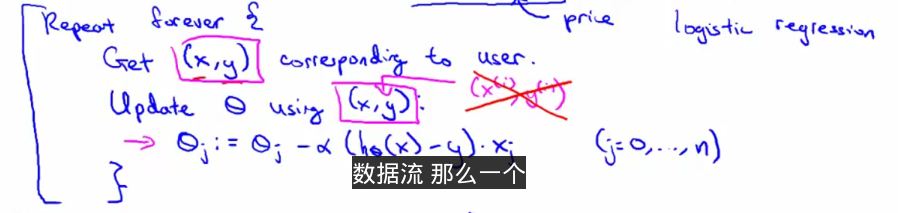 price logistic regression
Repeat forever {
Get (x,y) corresponding to user.
Update θ using (x,y): (x⁽ⁱ⁾, y⁽ⁱ⁾)
→ θⱼ := θⱼ - α (hθ(x) - y) · xⱼ (j=0,...,n)
数据流 那么一个
}